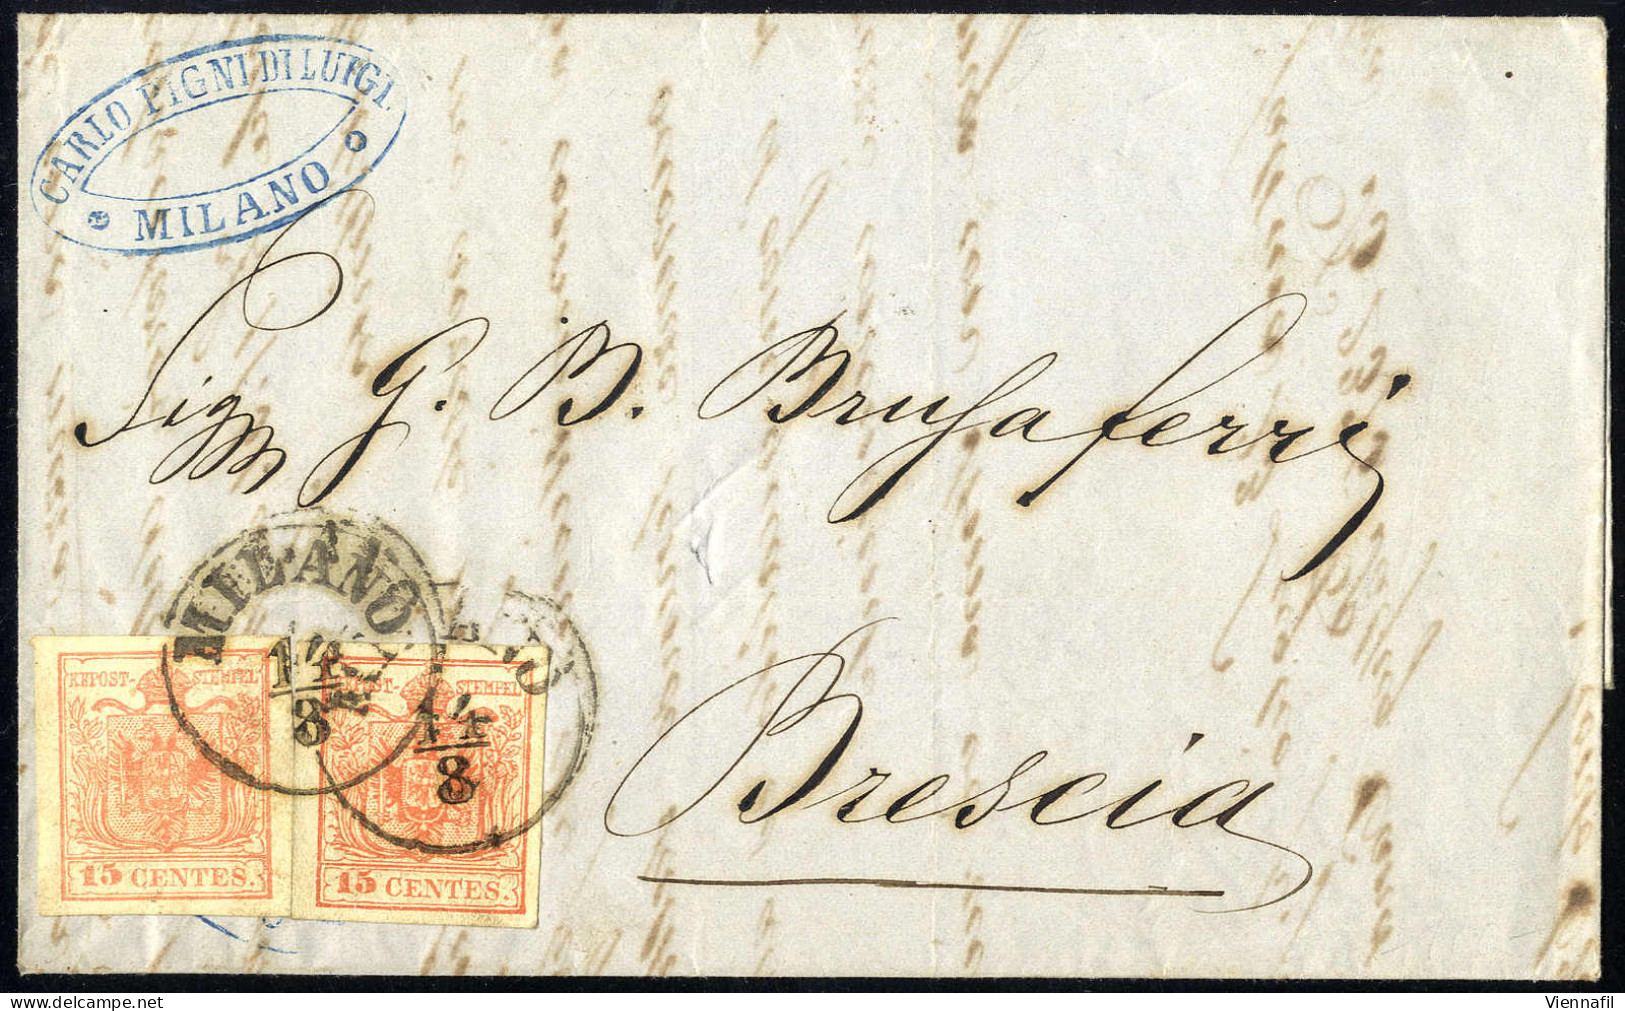 CARLO PIGNI DI LUIGI.
MILANO
Sig G. B. Brusaferri
MILANO
14
8
14
8
KKPOST-STEMPEL
KKPOST-STEMPEL
15 CENTES.
15 CENTES.
Brescia
Viennafil